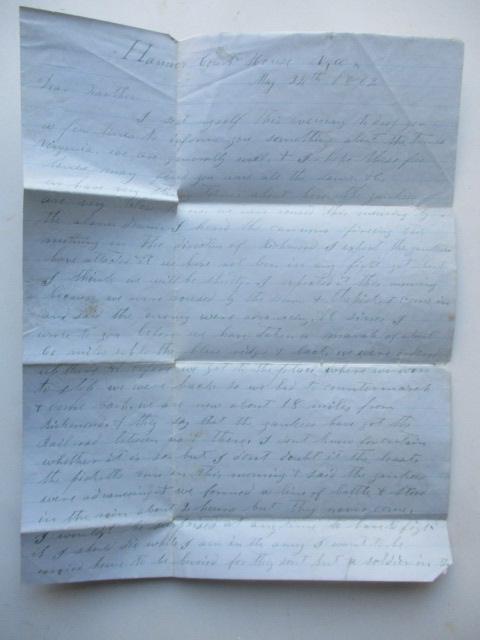 Hanover Court House Va
May 24th 1862
Dear Brother
I seat myself this evening to drop you
a few lines to inform you something about the times
Virginia we are generally well & I hope these few
lines may find you and all the same
in have very about here the yankees
are very near us we were roused this morning by
the alarm drum I heard the cannons fireing this
morning in the direction of Richmond I expect the yankees
have attacted it we have not been in any fight yet but
I think we will be shortly I expected it this morning
because we were roused by the drum & the pickets come in
and said the enemy were advancing. Since I
wrote to you before we have taken a march of about
60 miles up the blue ridge & back, we were ordered
up there & before we got to the place where we were
to stop we were back so we had to countermarch
& come back we are now about 18 miles from
Richmond & they say that the yankees have got the
Railroad between us & there, I dont know for certain
whether it is so but I dont doubt it the least
the picketts run in this morning & said the yankees
were advancing & we formed a line of battle & stood
in the rain about 2 hours but they never come,
I wouldnt be surprised at any time to have to fight
if I should die while I am in the army I want to be
carried home to be buried for they dont put a soldier in